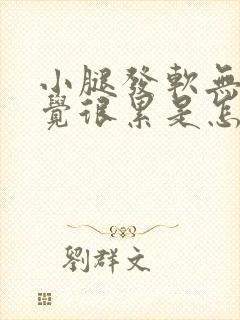 小腿發軟無
覺很累是怎
劉群文